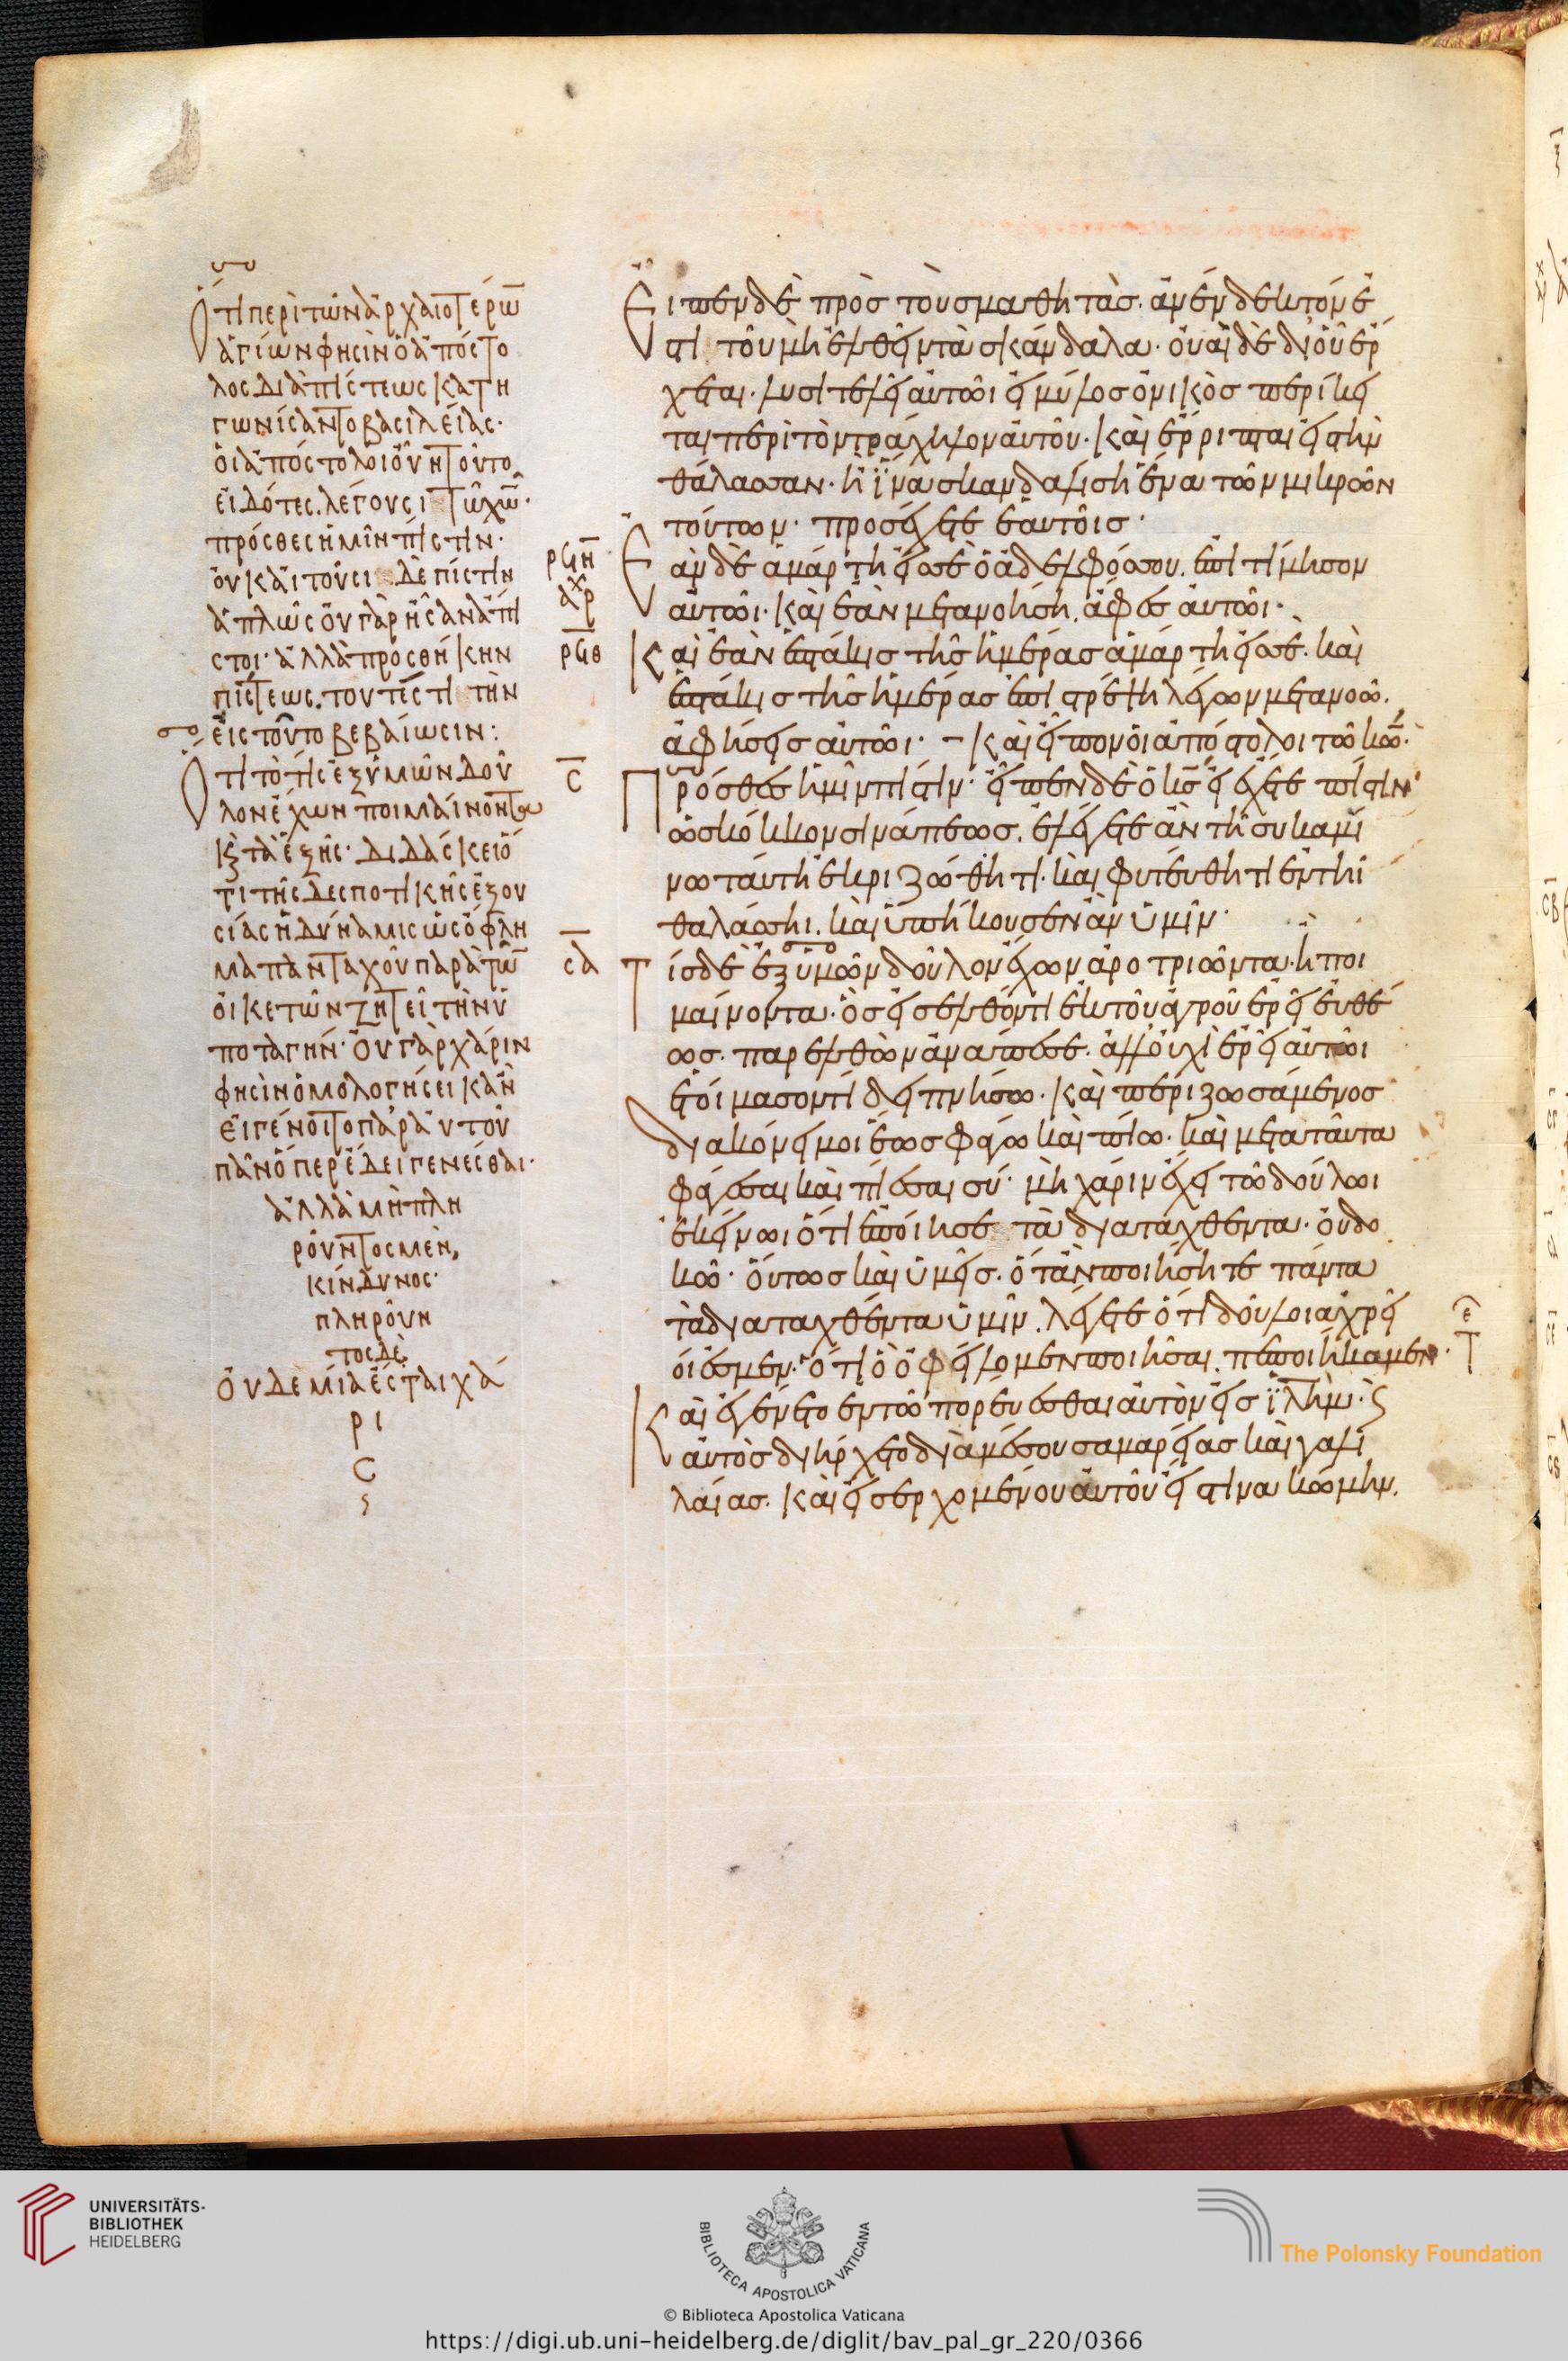 Ὅτι περὶ τῶν ἀρχαιοτέρω̅
ἁγίων φησὶν ὁ ἀπόστο
λος διὰ πίστεως κατη
γωνίσαντο βασιλείας·
οἱ ἀπόστολοι οὖν τοῦτο
εἰδότες. λέγουσι τῶ χω̅·
πρόσθες ἡμῖν πίστιν·
οὐκ αἰτοῦσι δὲ πίστιν
ἁπλῶς οὐ γὰρ ἦσαν ἄπι
στοι· ἀλλὰ προσθήκην
πίστεως. τουτέστι τὴν
εἰς τοῦτο βεβαίωσιν:
Ὅτι τὸ τίς ἐξ ὑμῶν δοῦ
λον ἔχων ποιμαίνοντα
κ τὰ ἑξῆς· διδάσκει ὅ
τι τῆς δεσποτικῆς ἐξου
σίας ἡ δύναμις ὡς ὄφλη
μα πανταχοῦ παρὰ τῶ̅
οἰκετῶν ζητεῖ τὴν ὑ
ποταγήν· οὐ γὰρ χάριν
φησὶν ὁμολογήσει κἂν
εἰ γένοιτο παρ' αὐτοῦ
πᾶν ὅπερ ἔδει γενέσθαι·
ἀλλὰ μὴ πλη
ροῦντος μὲν,
κίνδυνος·
πληροῦν
τος δὲ
οὐδεμία ἔσται χά
ρι
ς
Εἶπεν δὲ πρὸς τοὺς μαθητάς· ἀνένδεκτόν ἐ
στι τοῦ μὴ ἐλθεῖν τὰ σκάνδαλα· οὐαὶ δὲ δι' οὗ ἔρ
χεται· λυσιτελεῖ αὐτῶι εἰ μύλος ὀνικὸς περίκει
ται περὶ τὸν τράχηλον αὐτοῦ· καὶ ἔρριπται εἰς τὴν
θάλασσαν· ἢ ἵνα σκανδαλίση ἕνα τῶν μικρῶν
τούτων· προσέχετε ἑαυτοῖς·
ρϘη
Ἐὰν δὲ ἁμάρτη εἰς σὲ ὁ ἀδελφός σου. ἐπιτίμησον
αὐτῶι· καὶ ἐὰν μετανοήση. ἄφες αὐτῶι·
ρϘθ
Καὶ ἐὰν ἑπτάκις τῆς ἡμέρας ἁμάρτη εἰς σὲ. καὶ
ἑπτάκις τῆς ἡμέρας ἐπιστρέψη λέγων μετανοῶ.
ἀφήσεις αὐτῶι· – Καὶ εἶπον οἱ ἀπόστολοι τῶ κω̅·
σ̅
Πρόσθες ἡμῖν πίστιν· εἶπεν δὲ ὁ κς̅ εἰ ἔχετε πίστιν
ὡς κόκκον σινάπεως. ἐλέγετε ἂν τῆ συκαμί
νω ταύτη ἐκριζώθητι. καὶ φυτεύθητι ἐν τῆι
θαλάσσηι. καὶ ὑπήκουσεν ἂν ὑμῖν·
σα
Τίς δὲ ἐξ ὑμῶν δοῦλον ἔχων ἀροτριῶντα. ἢ ποι
μαίνοντα· ὃς εἰσελθόντι ἐκ τοῦ ἀγροῦ ἐρεῖ εὐθέ
ως. παρελθὼν ἀνάπεσε. ἀλλ' οὐχὶ ἐρεῖ αὐτῶι
ἑτοίμασον τί δειπνήσω· καὶ περιζωσάμενος
διακόνει μοι ἕως φάγω καὶ πίω. καὶ μετὰ ταῦτα
φάγεσαι καὶ πίεσαι σύ· μὴ χάριν ἔχει τῶ δούλωι
ἐκείνωι ὅτι ἐποίησε τὰ διαταχθέντα· οὐ δο
κῶ· οὕτως καὶ ὑμεῖς. ὅταν ποιήσητε πάντα
τὰ διαταχθέντα ὑμῖν. λέγετε ὅτι δοῦλοι ἀχρεῖ
οί ἐσμεν. ὅτι ὃ ὀφείλομεν ποιῆσαι. πεποιήκαμεν·
Καὶ ἐγένετο ἐν τῶ πορεύεσθαι αὐτὸν εἰς ἰλημ· ϛ
αὐτὸς διήρχετο διὰ μέσου σαμαρείας καὶ γαλι
λαίας. Καὶ εἰσερχομένου αὐτοῦ εἴς τινα κώμην.
UNIVERSITÄTS-
BIBLIOTHEK
HEIDELBERG
BIBLIOTECA APOSTOLICA VATICANA
© Biblioteca Apostolica Vaticana
The Polonsky Foundation
https://digi.ub.uni-heidelberg.de/diglit/bav_pal_gr_220/0366